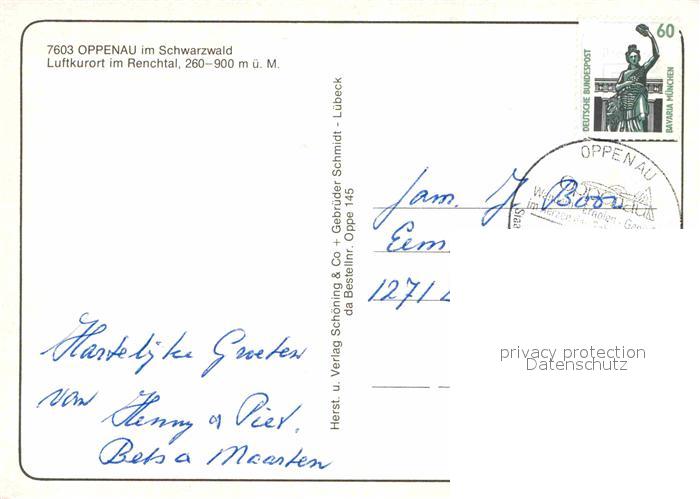 7603 OPPENAU im Schwarzwald
Luftkurort im Renchtal, 260–900 m ü. M.
60
DEUTSCHE BUNDESPOST
BAVARIA MÜNCHEN
OPPENAU
Erholen
Herst. u. Verlag Schöning & Co + Gebrüder Schmidt - Lübeck
da Bestellnr. Oppe 145
Fam. J. Boon
Eem
1271
privacy protection
Datenschutz
Hartelijke Groeten
van Henny a Piet.
Bets a Maarten